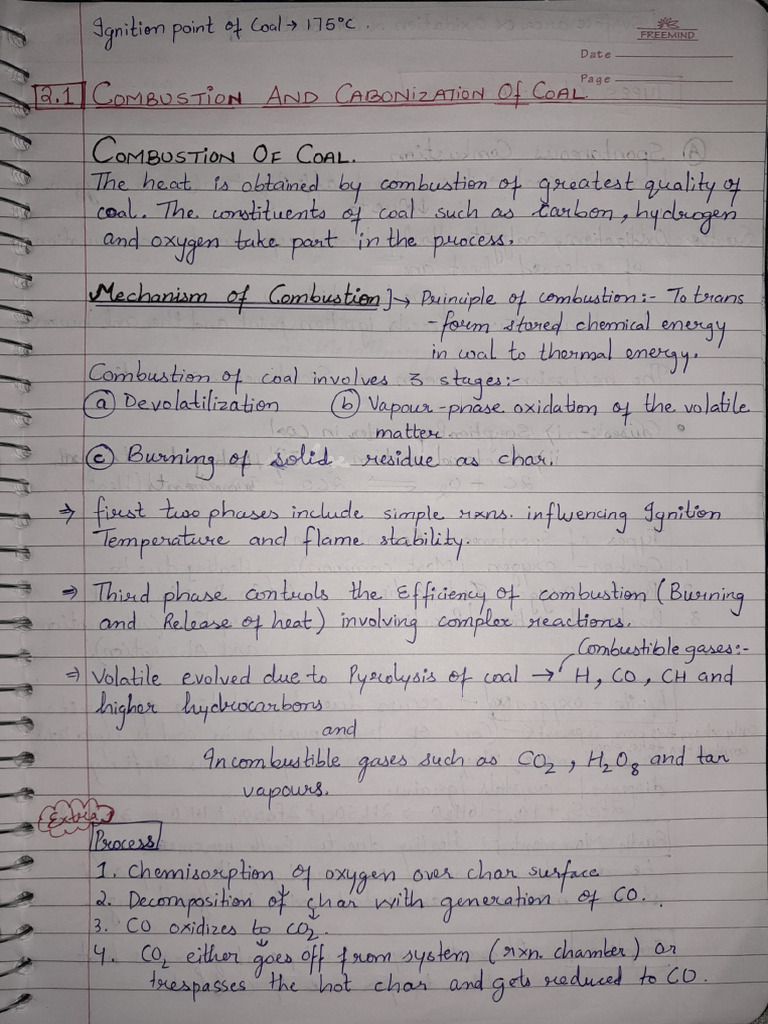 Ignition point of Coal → 175°C.
FREEMIND
Date
Page
2.1 COMBUSTION AND CABONIZATION Of COAL.
COMBUSTION OF COAL.
The heat is obtained by combustion of greatest quality of
coal. The constituents of coal such as Carbon, hydrogen
and oxygen take part in the process.
Mechanism of Combustion] → Principle of combustion:- To trans
-form stored chemical energy
in coal to thermal energy.
Combustion of coal involves 3 stages:-
(a) Devolatilization (b) Vapour-phase oxidation of the volatile
matter
(c) Burning of solid residue as char.
⇒ first two phases include simple rxns. influencing Ignition
Temperature and flame stability.
⇒ Third phase controls the Efficiency of combustion (Burning
and Release of heat) involving complex reactions.
Combustible gases:-
⇒ Volatile evolved due to Pyrolysis of coal → H, CO, CH and
higher hydrocarbons
and
Incombustible gases such as CO2, H2O8 and tar
vapours.
Extra
Process
1. Chemisorption of oxygen over char surface
2. Decomposition of char with generation of CO.
3. CO oxidizes to CO2.
4. CO2 either goes off from system (rxn. chamber) or
trespasses the hot char and gets reduced to CO.